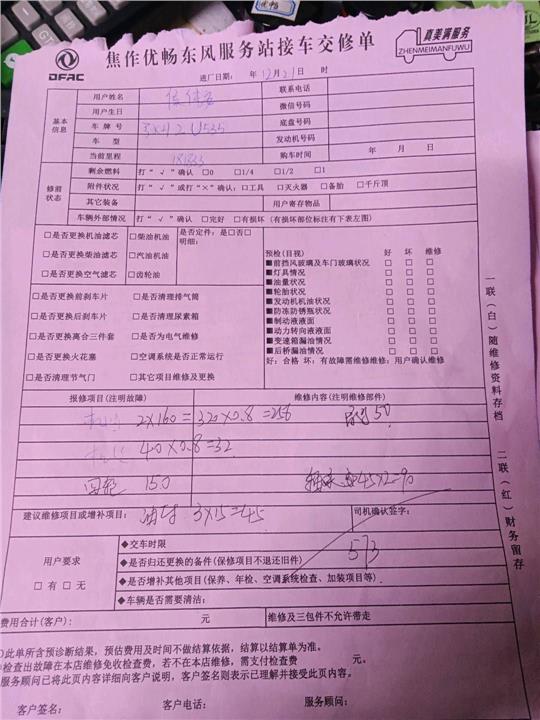 DFAC
焦作优畅东风服务站接车交修单
真美满服务
ZHENMEIMANFUWU
进厂日期： 年 12月21日 时
基本信息
用户姓名
联系电话
用户生日
微信号码
车牌号
底盘号码
车型
发动机号码
当前里程 181833
购车时间 年 月 日
修前状态
剩余燃料 打“√”确认 □0 □1/4 □1/2 □1
附件状况 打“√”或打“×”确认：□工具 □灭火器 □备胎 □千斤顶
其它装备
用户寄存物品
车辆外部情况 打“√”确认 □完好 □有损坏（有损坏部位标注有下表左图）
□是否更换机油滤芯 □柴油机油 是否定件：是□否□
明细：
□是否更换柴油滤芯 □汽油机油
□是否更换空气滤芯 □齿轮油
□是否更换前刹车片 □是否清理排气筒
□是否更换后刹车片 □是否清理尿素箱
□是否更换离合三件套 □是否为电气维修
□是否更换火花塞 □空调系统是否正常运行
□是否清理节气门 □其它项目维修及更换
预检(目视) 好 坏 维修
■前挡风玻璃及车门玻璃状况 □ □ □
■灯具情况 □ □ □
■油量状况 □ □ □
■轮胎状况 □ □ □
■发动机机油状况 □ □ □
■防冻防锈瓶状况 □ □ □
■制动液液面 □ □ □
■动力转向液液面 □ □ □
■变速箱漏油情况 □ □ □
■后桥漏油情况 □ □ □
好：合格 坏：有故障需维修维修：用户确认维修
报修项目(注明故障)
维修内容(注明维修部件)
2×160=320×0.8=256 50
40×0.8=32
150 45×2=90
建议维修项目或增补项目： 3×15=45
司机确认签字：
573
用户要求
□有□无
◆交车时限
◆是否归还更换的备件(保修项目不退还旧件)
◆是否增补其他项目(保养、年检、空调系统检查、加装项目等)
◆车辆是否需要清洁：
费用合计(客户)： 元
维修及三包件不允许带走
此单所含预诊断结果，预估费用及时间不做结算依据，结算以结算单为准。
检查出故障在本店维修免收检查费，若不在本店维修，需支付检查费 元。
服务顾问已将此页内容详细向客户说明，客户签名则表示已理解并接受此页内容。
客户签名： 客户电话： 服务顾问：
一联（白）随维修资料存档
二联（红）财务留存